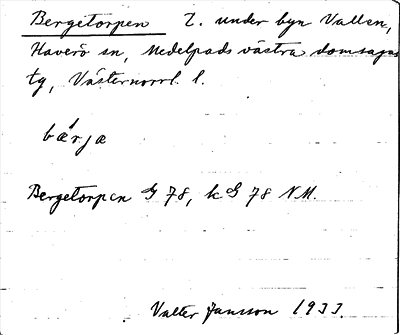 Bergetorpen t. under byn Vallen,
Haverö sn, Medelpads västra domsagas
tg, Västernorrl. l.
bærjæ
Bergetorpen G 78, k G 78 NM.
Valter Jansson 1933.